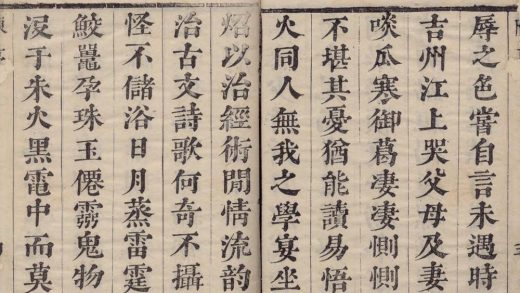 辱之色嘗自言未遇時
吉州江上哭父母及妻
啖瓜寒御葛凄凄惻惻
不堪其憂猶能讀易悟
火同人無我之學宴坐
炤以治經術閒情流韵
治古文詩歌何奇不攝
怪不儲浴日月蒸雷霆
鮫鼉孕珠玉僊霛鬼物
沒于朱火黑電中而莫